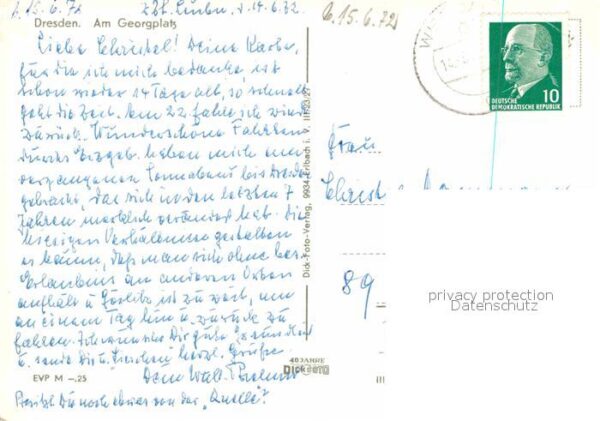 b. 15.6.72
z. Zt. Lunbu. d. 14.6.72
b. 15.6.72
Dresden. Am Georgplatz
Liebe Christel! Deine Karte,
für die ich mich bedanke, ist
schon wieder 14 Tage alt, so schnell
geht die Zeit. Am 22. fahre ich wieder
zurück. Wunderschöne Fahrten
durchs Erzgeb. haben mich am
vergangenen Sonnabend bis Dresden
gebracht, das sich in den letzten 7
Jahren merklich verändert hat. Die
hiesigen Verhältnisse gestatten
es kaum, daß man sich ohne bes.
Erlaubnis an anderen Orten
aufhält u. Görlitz ist zu weit, um
an einem Tag hin u. zurück zu
fahren. Ich wünsche Dir gute Gesundheit
u. sende Dir u. Lieschen herzl. Grüße
Dein Walt.
Besitzt Du noch etwas von der "Quelle"?
EVP M –.25
Dick-Foto-Verlag, 9934 Erlbach i. V. III
40 JAHRE
Dick FOTO
DEUTSCHE
DEMOKRATISCHE REPUBLIK
10
Frau
89
privacy protection
Datenschutz